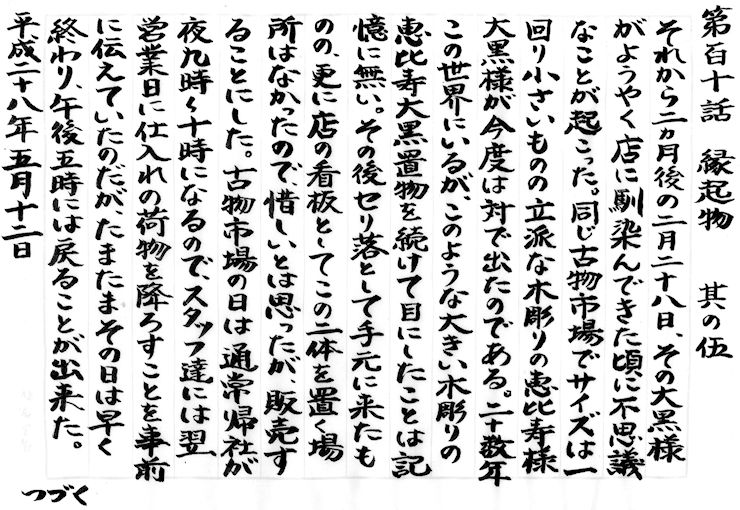 第百十話　縁起物　其の伍
それから二ヵ月後の二月二十八日、その大黒様
がようやく店に馴染んできた頃に不思議
なことが起こった。同じ古物市場でサイズは一
回り小さいものの立派な木彫りの恵比寿様
大黒様が今度は対で出たのである。二十数年
この世界にいるが、このような大きい木彫りの
恵比寿大黒置物を続けて目にしたことは記
憶に無い。その後セリ落として手元に来たも
のの、更に店の看板としてこの二体を置く場
所はなかったので、惜しいとは思ったが、販売す
ることにした。古物市場の日は通常帰社が
夜九時〜十時になるので、スタッフ達には翌
営業日に仕入れの荷物を降ろすことを事前
に伝えていたのだが、たまたまその日は早く
終わり、午後五時には戻ることが出来た。
平成二十八年 五月十二日
つづく